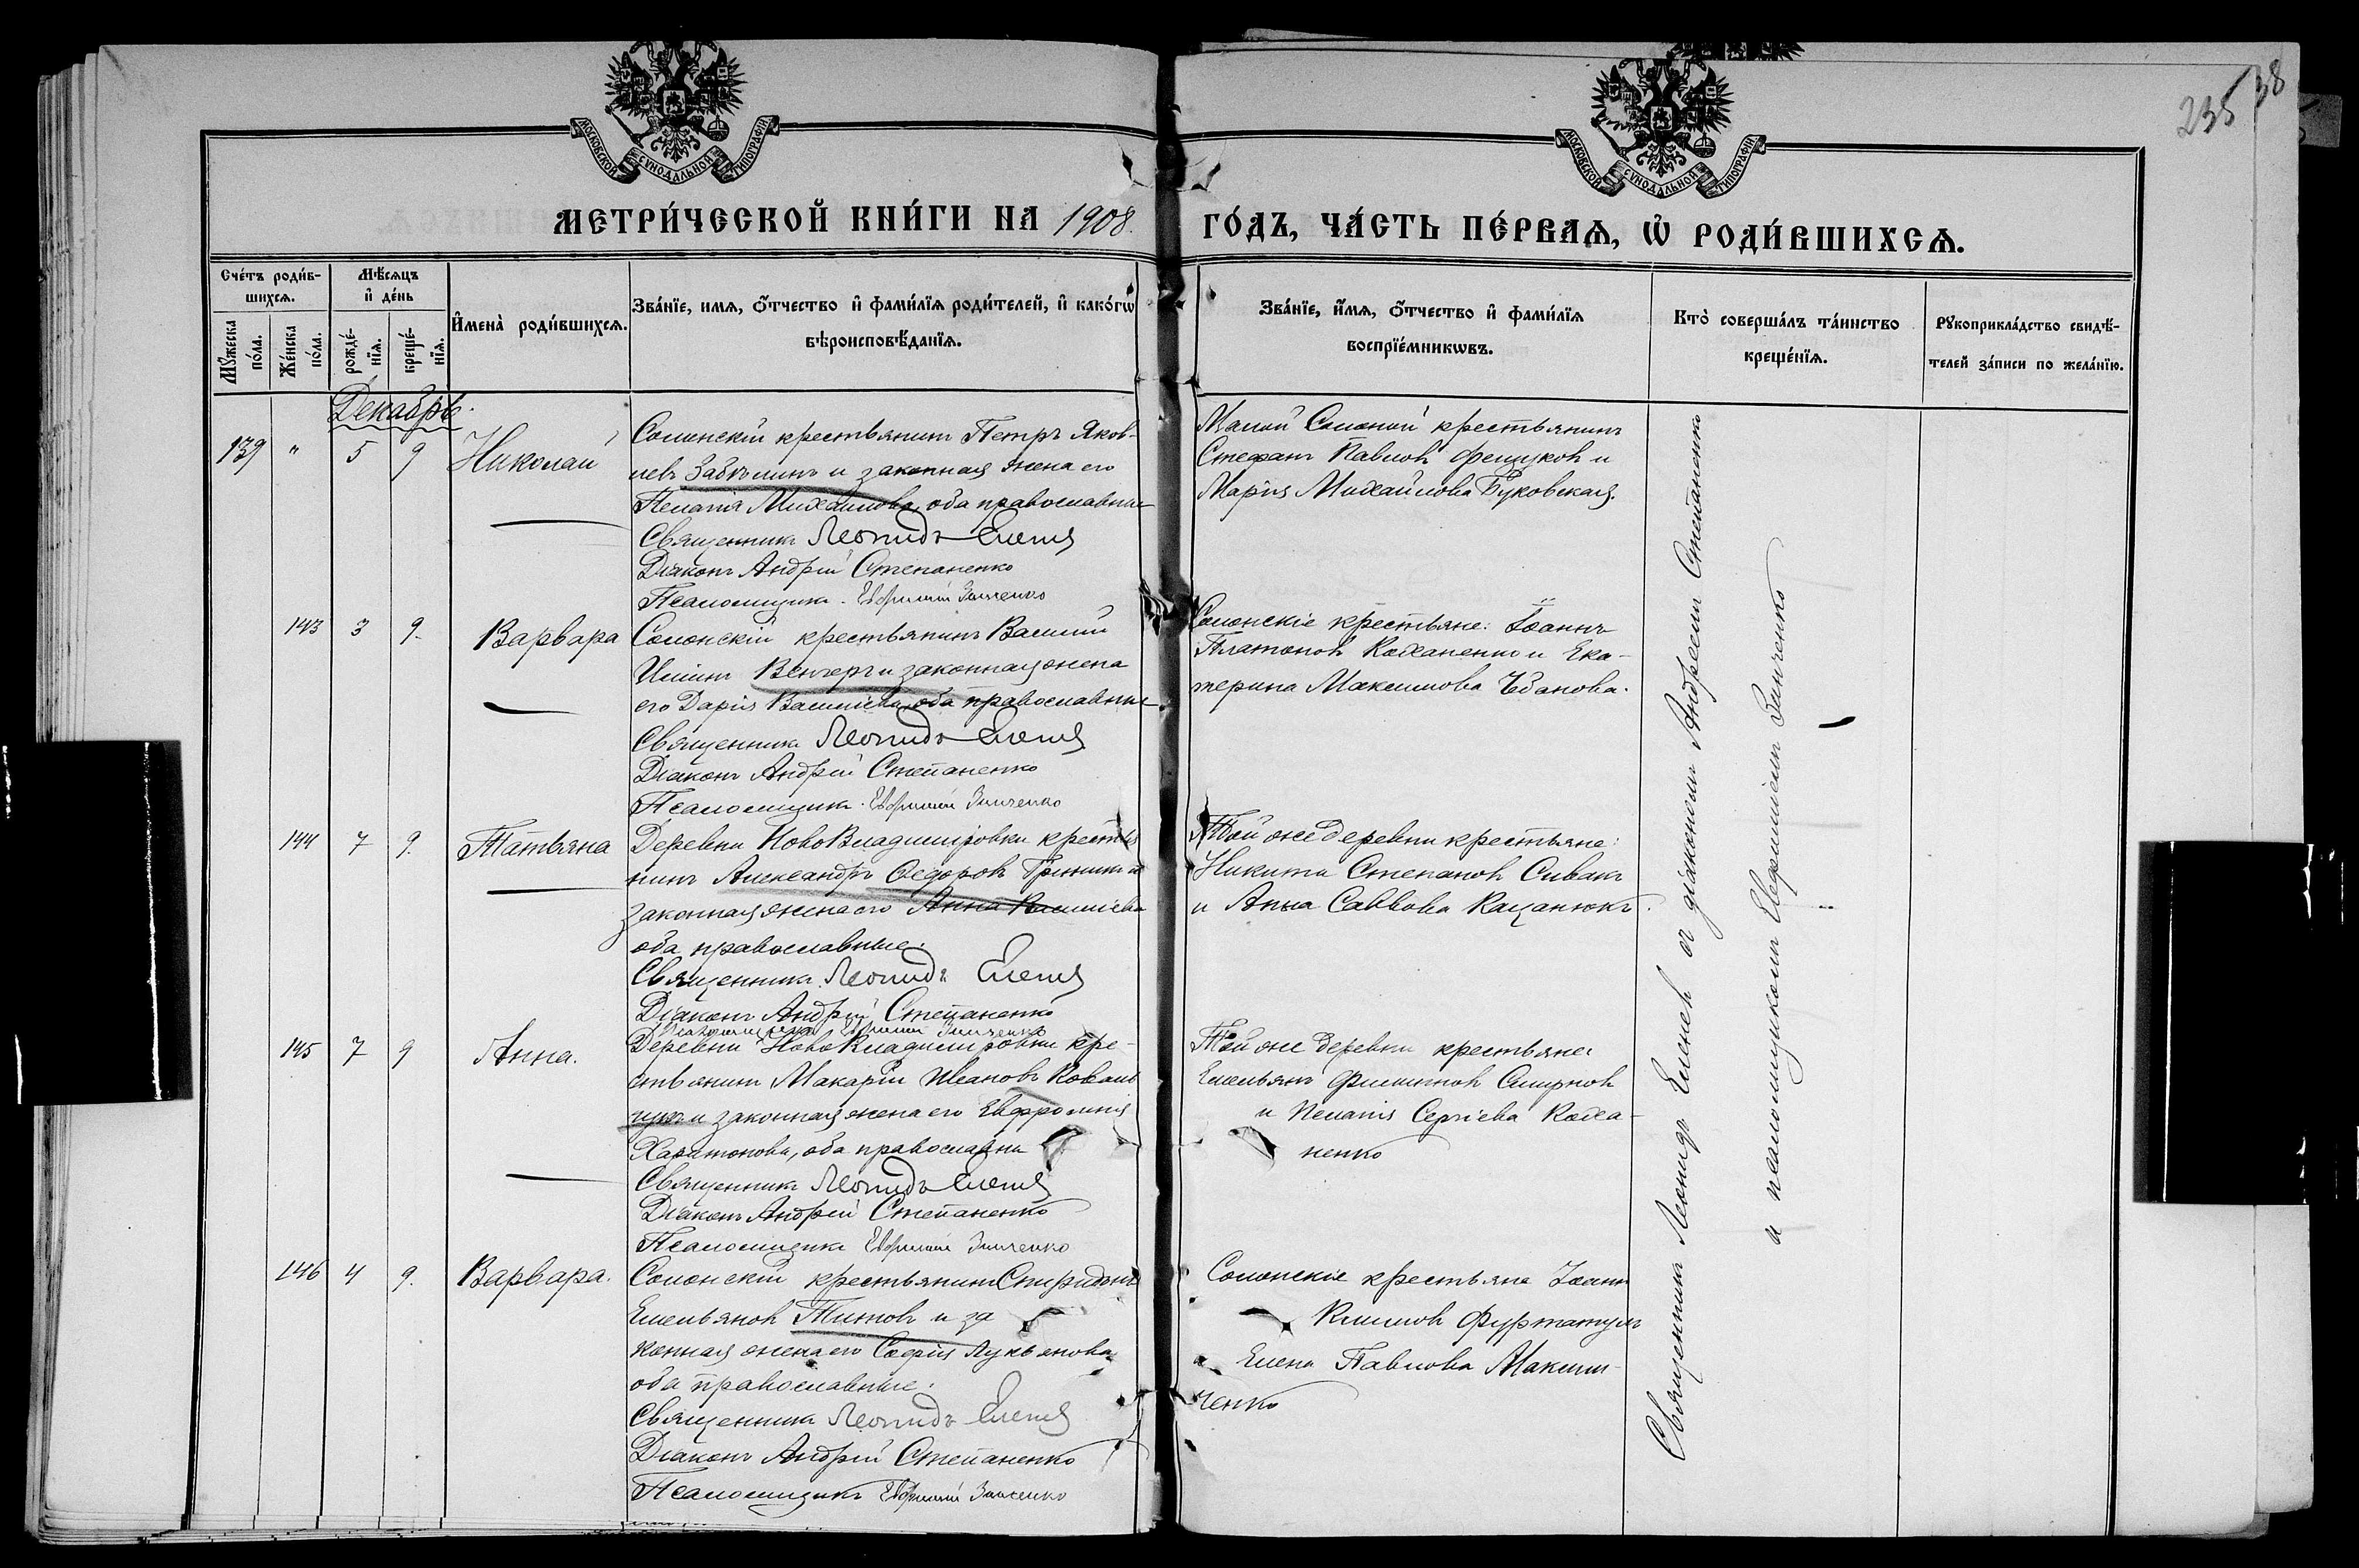 235
38
МОСКОВСКОЙ СѴНОДАЛЬНОЙ ТИПОГРАФІИ
МОСКОВСКОЙ СѴНОДАЛЬНОЙ ТИПОГРАФІИ
МЕТРИ́ЧЕСКОЙ КНИ́ГИ НА 1908.
ГО́ДЪ, ЧА́СТЬ ПЕ́РВАѦ, Ѡ҆ РОДИ́ВШИХСѦ.
Сче́тъ роди́в-
шихсѧ.
Мꙋ́жеска по́ла.
Же́нска по́ла.
Мѣ́сѧцъ
и҆ де́нь
рожде́-нїѧ.
креще́-нїѧ.
И҆мена̀ роди́вшихсѧ.
Зва́нїе, имѧ, ѻ҆́тчество и҆ фами́лїѧ роди́телей, и҆ како́гѡ
вѣроисповѣ́данїѧ.
Зва́нїе, и҆́мѧ, ѻ҆́тчество и҆ фами́лїѧ
воспрїе́мникѡвъ.
Кто̀ соверша́лъ та́инство
креще́нїѧ.
Рꙋкоприкла́дство свидѣ́-
телей за́писи по жела́нїю.
Декабрь.
139 " 5 9 Николай
Солонскій крестьянинъ Петръ Яков-
левъ Забѣлинъ и законная жена его
Пелагія Михайлова, оба православные
Священникъ Леонидъ Еленев
Діаконъ Андрей Степаненко
Псаломщикъ Евфимій Зинченко
Малой Солоной крестьянинъ
Стефанъ Павловъ Фещуковъ и
Марія Михайлова Буковская.
143 3 9. Варвара
Солонскій крестьянинъ Василій
Венгеръ и законная жена
его Дарія Василіева, оба православные
Священникъ Леонидъ Еленев
Діаконъ Андрей Степаненко
Псаломщикъ Евфимій Зинченко
Солонскіе крестьяне: Іоаннъ
Платоновъ Коханенко и Ека-
терина Максимова
144 7 9. Татьяна
Деревни НовоВладиміровки крестья
нинъ Александръ Ѳедоровъ и
законная жена его Анна Василіева
оба православные.
Священникъ Леонидъ Еленев
Діаконъ Андрей Степаненко
Псаломщикъ Евфимій Зинченко
Той же деревни крестьяне:
Никита Степановъ Сивакъ
и Анна Саввова Кацанюкъ.
145 7 9 Анна.
Деревни НовоВладиміровки кре-
стьянинъ Макарій Ивановъ Коваль
чукъ и законная жена его Евфросинія
Харитонова, оба православны
Священникъ Леонидъ Еленев
Діаконъ Андрей Степаненко
Псаломщикъ Евфимій Зинченко
Той же деревни крестьяне:
Емельянъ Филипповъ Смирновъ
и Пелагія Сергіева Коха-
ненко
146 4 9. Варвара.
Солонскій крестьянинъ Спиридонъ
Емельяновъ Титовъ и за
конная жена его Софія Лукьянова
оба православные.
Священникъ Леонидъ Еленев
Діаконъ Андрей Степаненко
Псаломщикъ Евфимій Зинченко
Солонскіе крестьяне Іоаннъ
Климовъ Фуртатумъ
и Елена Павлова Максим-
ченко
Священникъ Леонидъ Еленевъ съ діакономъ Андреемъ Степаненко
и псаломщикомъ Евфиміемъ Зинченко